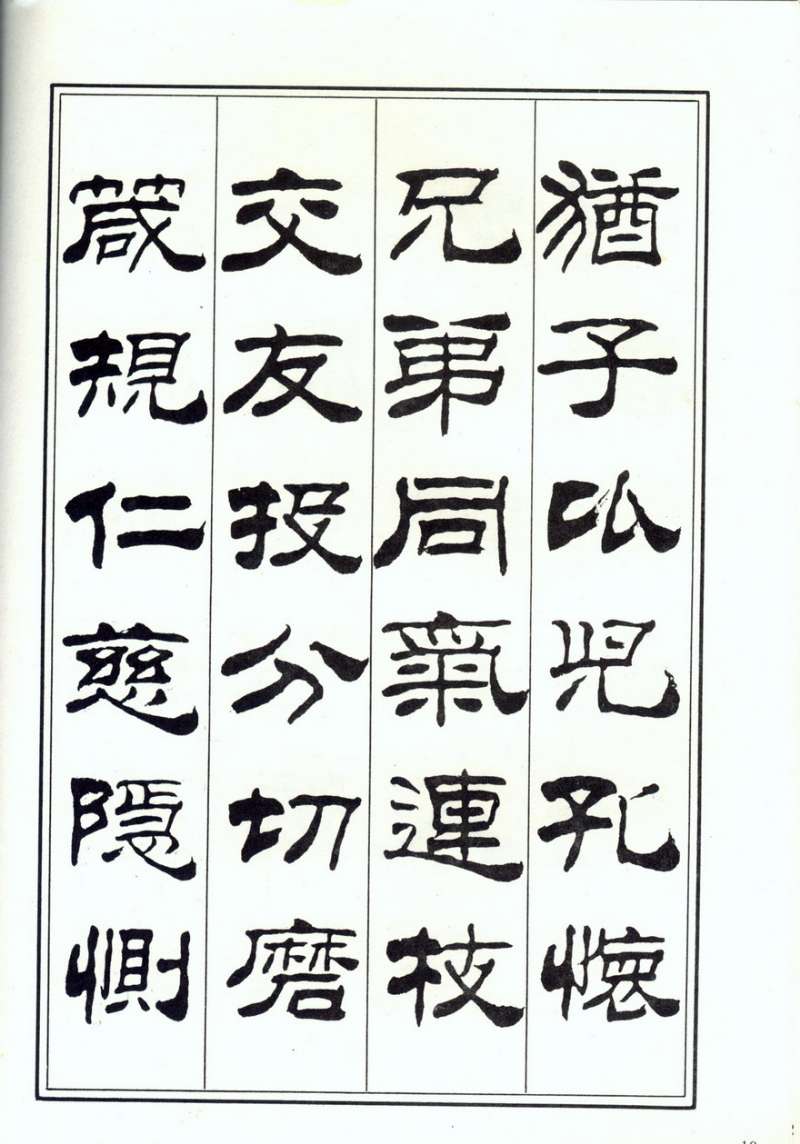 猶子㕥兒孔懷
兄弟同氣連枝
交友投分切磨
箴規仁慈隱惻